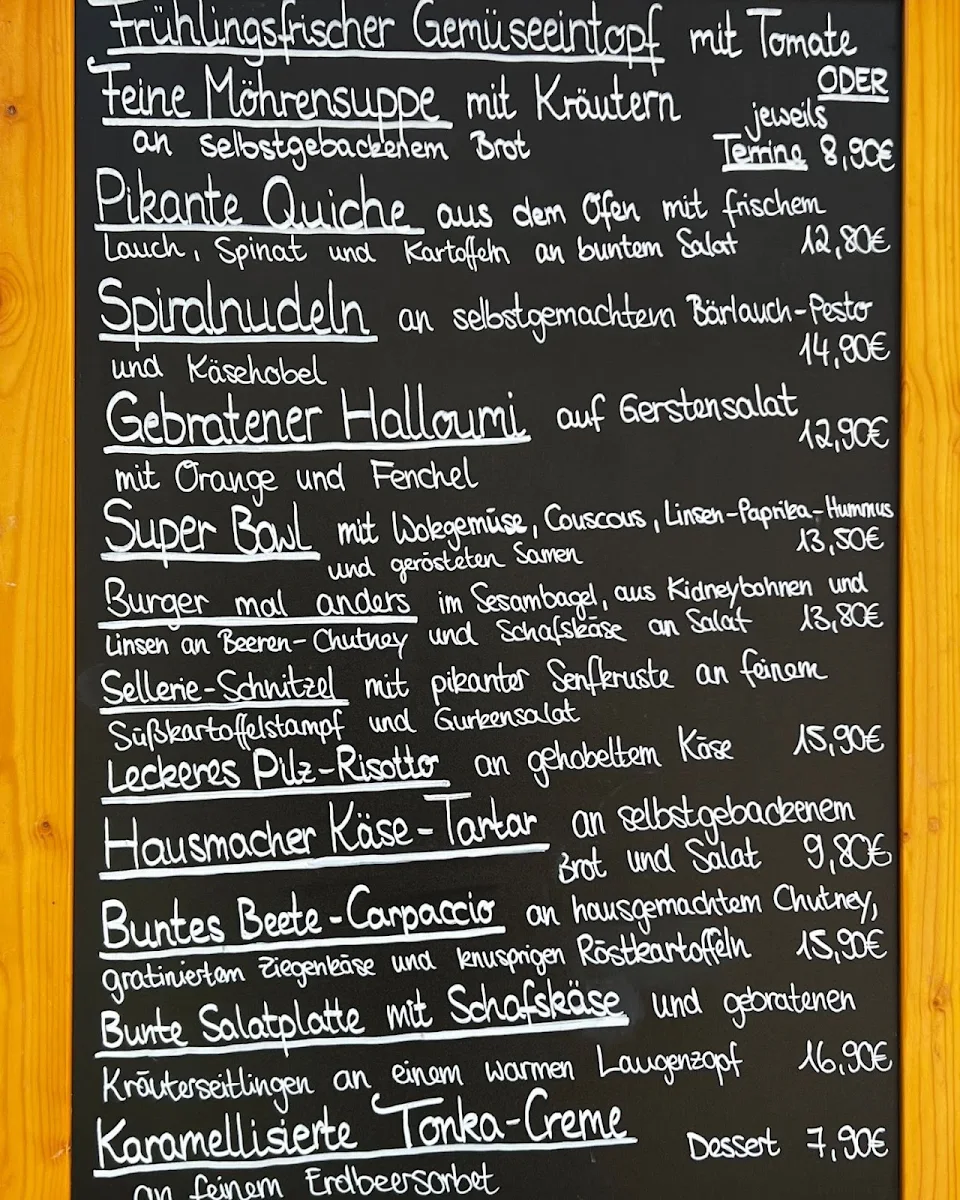 Frühlingsfrischer Gemüseeintopf mit Tomate
ODER
Feine Möhrensuppe mit Kräutern jeweils
an selbstgebackenem Brot Terrine 8,90€
Pikante Quiche aus dem Ofen mit frischem
Lauch, Spinat und Kartoffeln an buntem Salat 12,80€
Spiralnudeln an selbstgemachtem Bärlauch-Pesto
und Käsehobel 14,90€
Gebratener Halloumi auf Gerstensalat
mit Orange und Fenchel 12,90€
Super Bowl mit Wokgemüse, Couscous, Linsen-Paprika-Hummus
und gerösteten Samen 13,50€
Burger mal anders im Sesambagel, aus Kidneybohnen und
Linsen an Beeren-Chutney und Schafskäse an Salat 13,80€
Sellerie-Schnitzel mit pikanter Senfkruste an feinem
Süßkartoffelstampf und Gurkensalat
Leckeres Pilz-Risotto an gehobeltem Käse 15,90€
Hausmacher Käse-Tartar an selbstgebackenem
Brot und Salat 9,80€
Buntes Beete-Carpaccio an hausgemachtem Chutney,
gratiniertem Ziegenkäse und knusprigen Röstkartoffeln 15,90€
Bunte Salatplatte mit Schafskäse und gebratenen
Kräuterseitlingen an einem warmen Laugenzopf 16,90€
Karamellisierte Tonka-Creme Dessert 7,90€
an feinem Erdbeersorbet